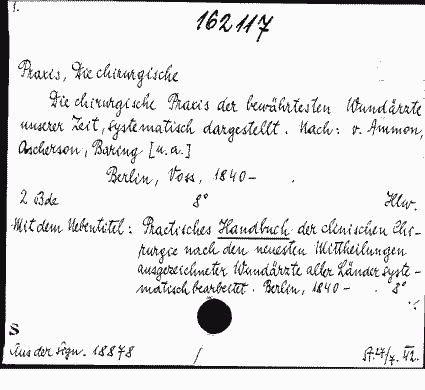 1.
162117
Praxis, Die chirurgische
Die chirurgische Praxis der bewährtesten Wundärzte
unserer Zeit, systematisch dargestellt. Nach: v. Ammon,
Ascherson, Baring [u.a.]
Berlin, Voss, 1840-
2 Bde 8° Hlw.
Mit dem Nebentitel: Practisches Handbuch der clinischen Chi-
rurgie nach den neuesten Mittheilungen
ausgezeichneter Wundärzte aller Länder syste-
matisch bearbeitet. Berlin, 1840- . 8°
S
Aus der Sign. 18878 / St. 27/7. VI2.